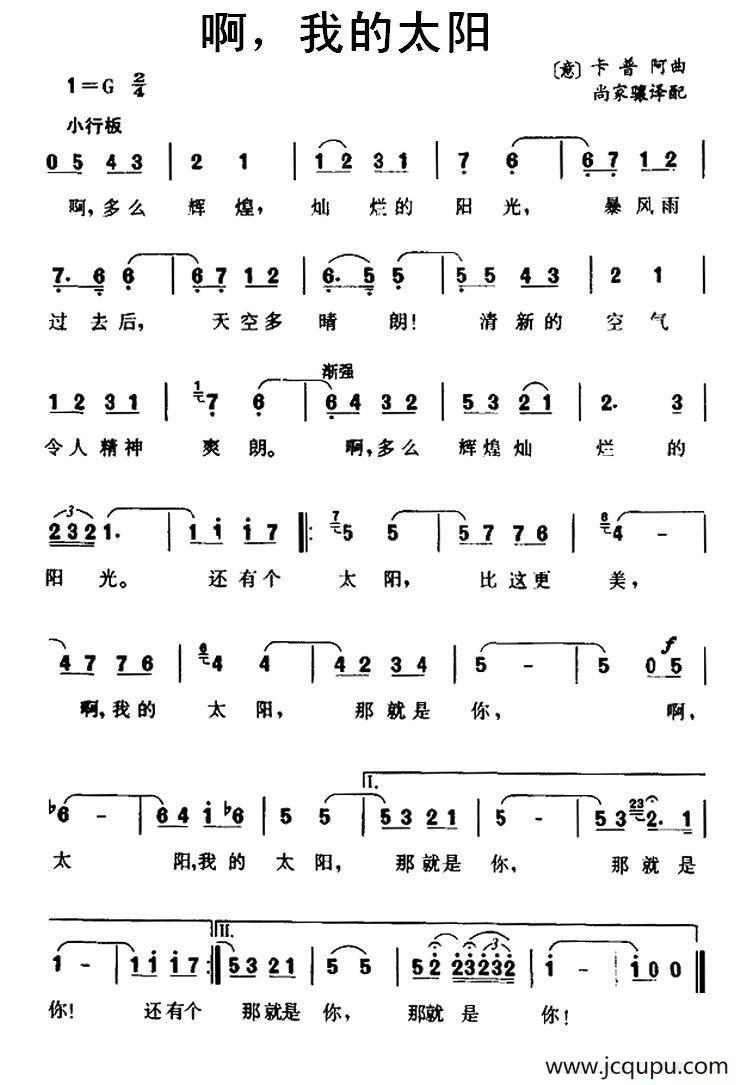 啊，我的太阳
1=G 2/4
〔意〕卡普阿曲
尚家骧译配
小行板
0 5 4 3 | 2 1 | 1 2 3 1 | 7 6 | 6 7 1 2 |
啊,多么 辉煌, 灿烂的 阳光, 暴风雨
7. 6 6 | 6 7 1 2 | 6. 5 5 | 5 5 4 3 | 2 1 |
过去后, 天空多 晴朗! 清新的 空气
渐强
1 2 3 1 | 1 7 6 | 6 4 3 2 | 5 3 2 1 | 2. 3 |
令人精神 爽朗。 啊,多么 辉煌灿 烂的
3
2 3 2 1. | 1 i i 7 ‖: 7 5 5 | 5 7 7 6 | 6 4 - |
阳光。 还有个 太阳, 比这更 美,
f
4 7 7 6 | 6 4 4 | 4 2 3 4 | 5 - | 5 0 5 |
啊,我的 太阳, 那就是 你, 啊,
I.
♭6 - | 6 4 i ♭6 | 5 5 | 5 3 2 1 | 5 - | 5 3 23 2. 1 |
太 阳,我的 太阳, 那就是 你, 那就是
II.
1 - | 1 i i 7 :‖ 5 3 2 1 | 5 5 | 5 2 2 3 2 3 2 | i - | i 0 0 ‖
你! 还有个 那就是 你, 那就是 你!
www.jcqupu.com